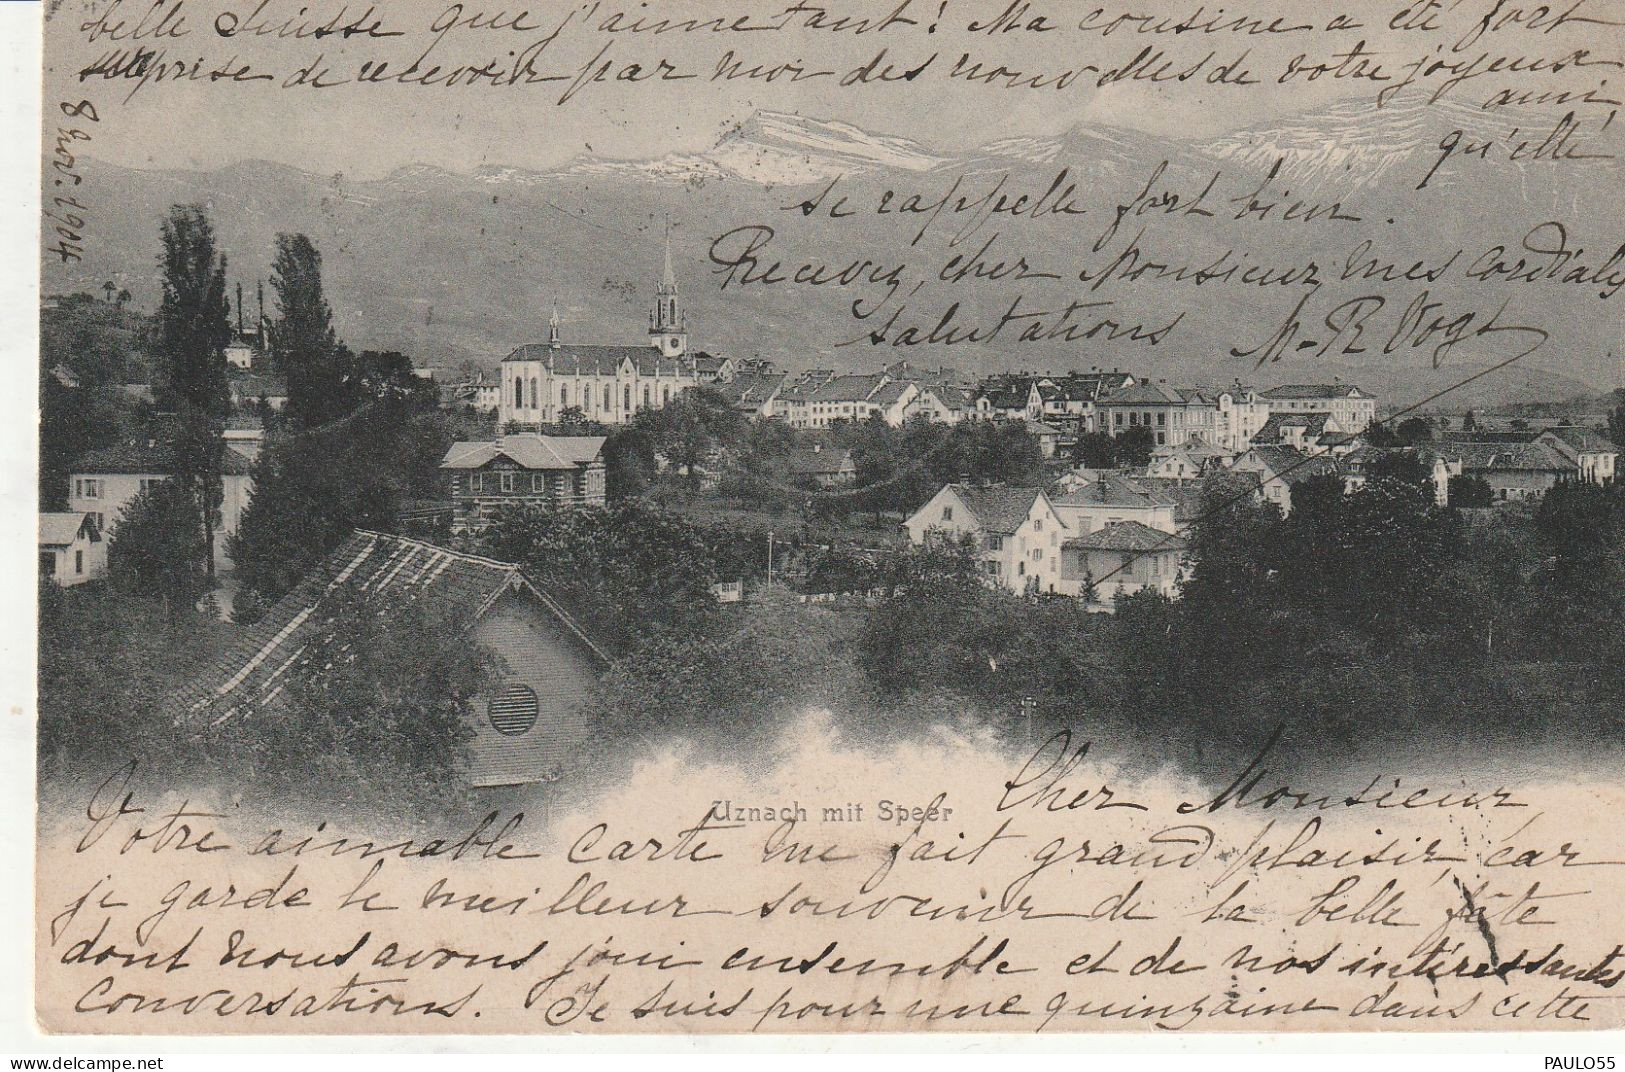 Cher Monsieur,
Votre aimable carte me fait grand plaisir, car
je garde le meilleur souvenir de la belle fête
dont nous avons joui ensemble et de nos intéressantes
conversations. Je suis pour une quinzaine dans cette
belle Suisse que j'aime tant! Ma cousine a été fort
surprise de recevoir par moi des nouvelles de votre joyeux
ami,
qu'elle
se rappelle fort bien.
Recevez, cher Monsieur, mes cordiales
salutations M-R Vogt
8 1904
Uznach mit Speer
PAULO55